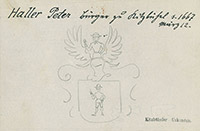 Haller Peter Bürger zu Kitzbühel v. 1667
März 12.
Kitzbühler Urkunden.